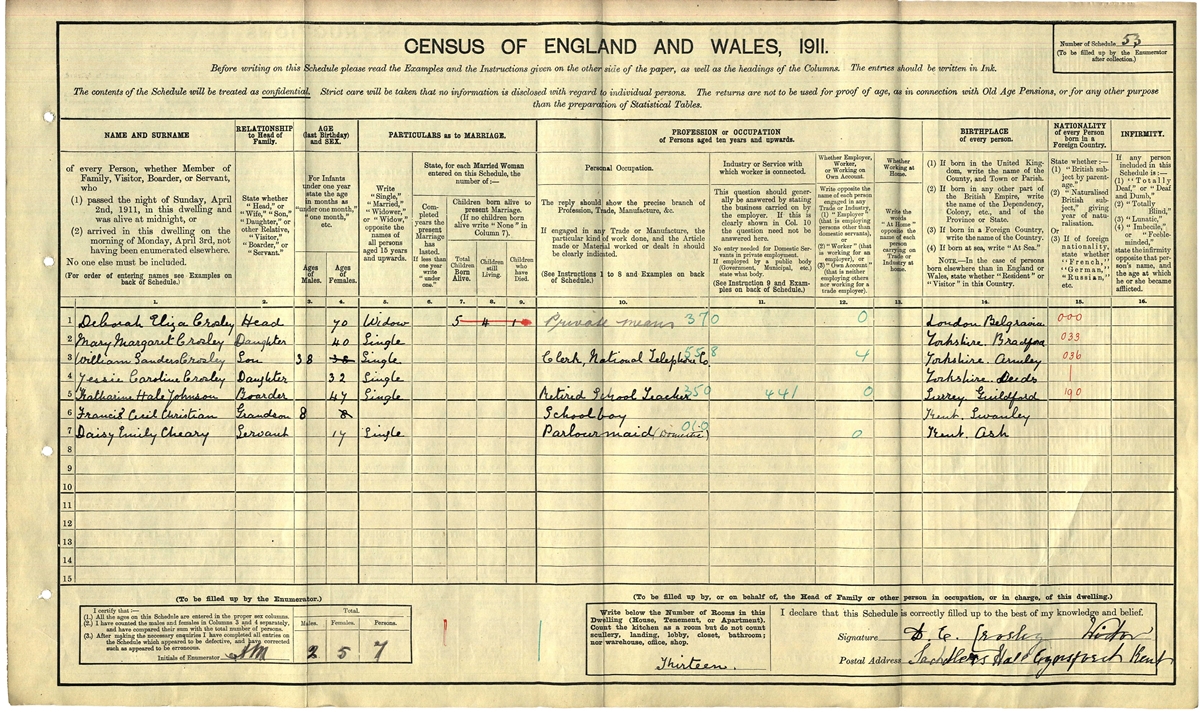 CENSUS OF ENGLAND AND WALES, 1911.
Number of Schedule 53
(To be filled up by the Enumerator
after collection.)
Before writing on this Schedule please read the Examples and the Instructions given on the other side of the paper, as well as the headings of the Columns. The entries should be written in Ink.
The contents of the Schedule will be treated as confidential. Strict care will be taken that no information is disclosed with regard to individual persons. The returns are not to be used for proof of age, as in connection with Old Age Pensions, or for any other purpose
than the preparation of Statistical Tables.
NAME AND SURNAME
of every Person, whether Member of
Family, Visitor, Boarder, or Servant,
who
(1) passed the night of Sunday, April
2nd, 1911, in this dwelling and
was alive at midnight, or
(2) arrived in this dwelling on the
morning of Monday, April 3rd, not
having been enumerated elsewhere.
No one else must be included.
(For order of entering names see Examples on
back of Schedule.)
RELATIONSHIP
to Head of
Family.
State whether
"Head," or
"Wife," "Son,"
"Daughter," or
other Relative,
"Visitor,"
"Boarder," or
"Servant."
AGE
(last Birthday)
and SEX.
For Infants
under one year
state the age
in months as
"under one month,"
"one month,"
etc.
Ages
of
Males.
Ages
of
Females.
PARTICULARS as to MARRIAGE.
Write
"Single,"
"Married,"
"Widower,"
or "Widow,"
opposite the
names of
all persons
aged 15 years
and upwards.
State, for each Married Woman
entered on this Schedule, the
number of:—
Completed
years the
present
Marriage
has
lasted.
If less than
one year
write
"under
one."
Children born alive to
present Marriage.
(If no children born
alive write "None" in
Column 7).
Total
Children
Born
Alive.
Children
still
Living.
Children
who
have
Died.
PROFESSION or OCCUPATION
of Persons aged ten years and upwards.
Personal Occupation.
The reply should show the precise branch of
Profession, Trade, Manufacture, &c.
If engaged in any Trade or Manufacture, the
particular kind of work done, and the Article
made or Material worked or dealt in should
be clearly indicated.
(See Instructions 1 to 8 and Examples on back
of Schedule.)
Industry or Service with
which worker is connected.
This question should generally
be answered by stating
the business carried on by
the employer. If this is
clearly shown in Col. 10
the question need not be
answered here.
No entry needed for Domestic Servants
in private employment.
If employed by a public body
(Government, Municipal, etc.)
state what body.
(See Instruction 9 and Examples
on back of Schedule.)
Whether Employer,
Worker,
or Working on
Own Account.
Write opposite the
name of each person
engaged in any
Trade or Industry,
(1) "Employer"
(that is employing
persons other than
domestic servants),
or
(2) "Worker" (that
is working for an
employer), or
(3) "Own Account"
(that is neither
employing others
nor working for a
trade employer).
Whether
Working at
Home.
Write the
words
"At Home"
opposite the
name of each
person
carrying on
Trade or
Industry at
home.
BIRTHPLACE
of every person.
(1) If born in the United Kingdom,
write the name of the
County, and Town or Parish.
(2) If born in any other part of
the British Empire, write
the name of the Dependency,
Colony, etc., and of the
Province or State.
(3) If born in a Foreign Country,
write the name of the Country.
(4) If born at sea, write "At Sea."
NOTE.—In the case of persons
born elsewhere than in England or
Wales, state whether "Resident" or
"Visitor" in this Country.
NATIONALITY
of every Person
born in a
Foreign Country.
State whether:—
(1) "British
subject by parentage."
(2) "Naturalised
British
subject," giving
year of naturalisation.
Or
(3) If of foreign
nationality,
state whether
"French,"
"German,"
"Russian,"
etc.
INFIRMITY.
If any person
included in this
Schedule is:—
(1) "Totally
Deaf," or "Deaf
and Dumb,"
(2) "Totally
Blind,"
(3) "Lunatic,"
(4) "Imbecile,"
or "Feeble-minded,"
state the infirmity
opposite that person's
name, and
the age at which
he or she became
afflicted.
1. 2. 3. 4. 5. 6. 7. 8. 9. 10. 11. 12. 13. 14. 15. 16.
1 Deborah Eliza Crosley Head 70 Widow 5 4 1 Private means 370 0 London Belgravia 000
2 Mary Margaret Crosley Daughter 40 Single Yorkshire Bradford 033
3 William Sanders Crosley Son 38 38 Single Clerk, National Telephone Co 558 4 Yorkshire. Armley 036
4 Jessie Caroline Crosley Daughter 32 Single Yorkshire. Leeds
5 Katharine Hale Johnson Boarder 47 Single Retired School Teacher 350 441 0 Surrey Guildford 190
6 Francis Cecil Christian Grandson 8 8 Schoolboy Kent. Swanley
7 Daisy Emily Cheary Servant 17 Single Parlourmaid (Domestic) 010 0 Kent. Ash
8
9
10
11
12
13
14
15
(To be filled up by the Enumerator.)
I certify that:—
(1.) All the ages on this Schedule are entered in the proper sex columns.
(2.) I have counted the males and females in Columns 3 and 4 separately,
and have compared their sum with the total number of persons.
(3.) After making the necessary enquiries I have completed all entries on
the Schedule which appeared to be defective, and have corrected
such as appeared to be erroneous.
Initials of Enumerator
Total.
Males. Females. Persons.
2 5 7
(To be filled up by, or on behalf of, the Head of Family or other person in occupation, or in charge, of this dwelling.)
Write below the Number of Rooms in this
Dwelling (House, Tenement, or Apartment).
Count the kitchen as a room but do not count
scullery, landing, lobby, closet, bathroom;
nor warehouse, office, shop.
Thirteen.
I declare that this Schedule is correctly filled up to the best of my knowledge and belief.
Signature D. E. Crosley Widow
Postal Address Saddlers Hall Eynsford Kent